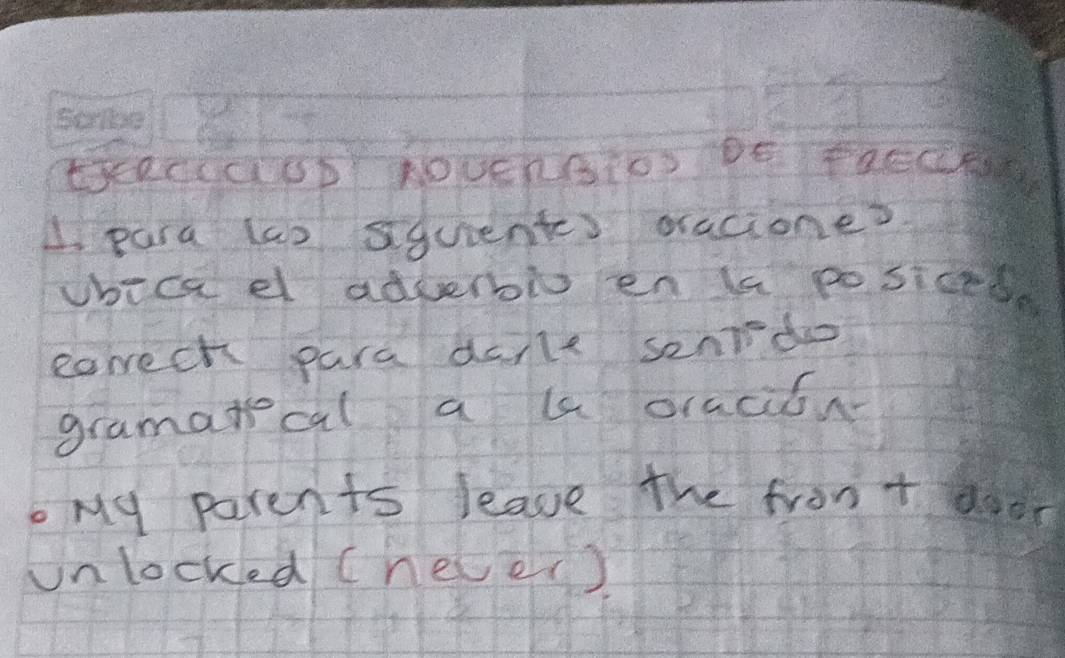 Scribe
Ejercicios ADVERBIOS DE FRECUEN
1. para las siguientes oraciones
ubica el adverbio en la posición
correct para darle sentido
gramatical a la oración
• My parents leave the front door
unlocked (never).